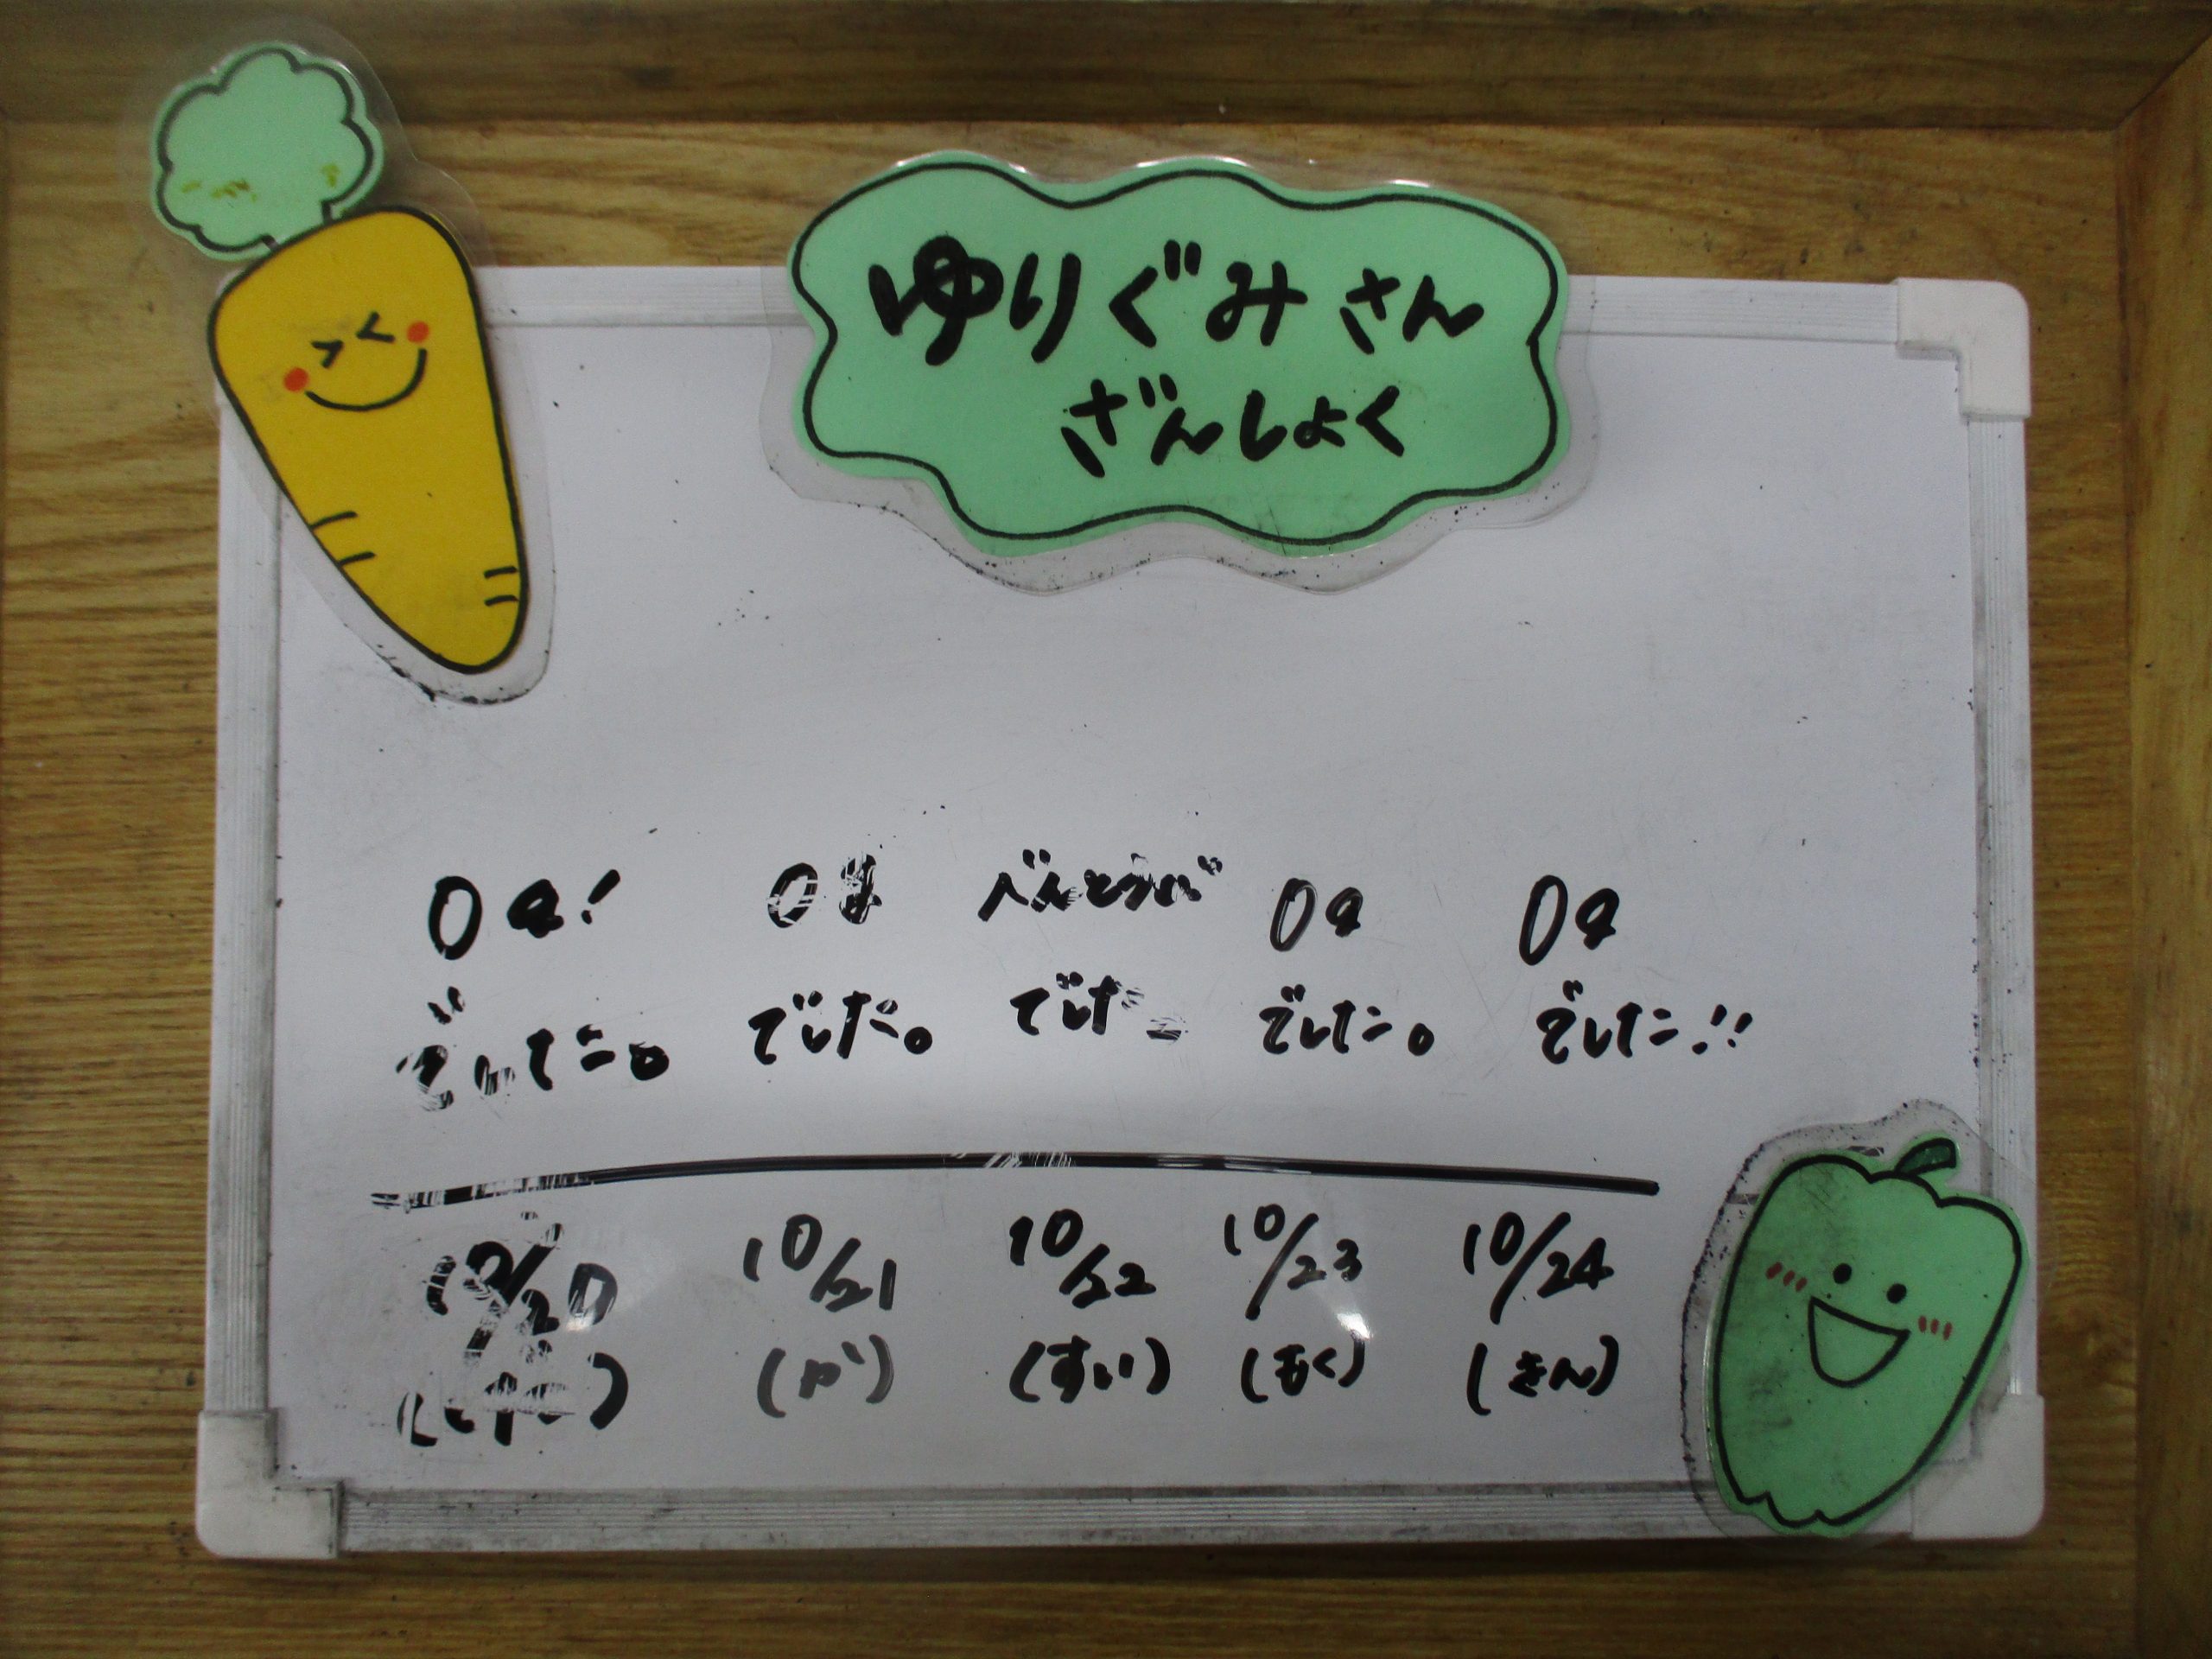 ゆりぐみさん
ざんしょく
0g! 0g べんとうび 0g 0g
でした。 でした。 でした でした。 でした!!
10/20 10/21 10/22 10/23 10/24
(か) (すい) (もく) (きん)